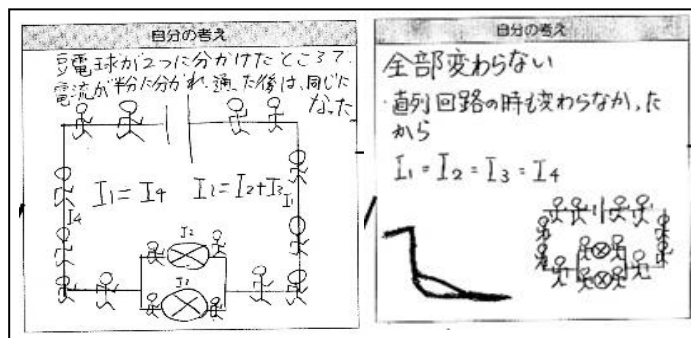 自分の考え
豆電球が2つに分かけたところで
電流が半分に分かれ、通った後は、同じに
なった
I₁=I₄ I₁=I₂+I₃
I₁
I₄
I₂
I₃
自分の考え
全部変わらない
・直列回路の時も変わらなかった
から
I₁=I₂=I₃=I₄